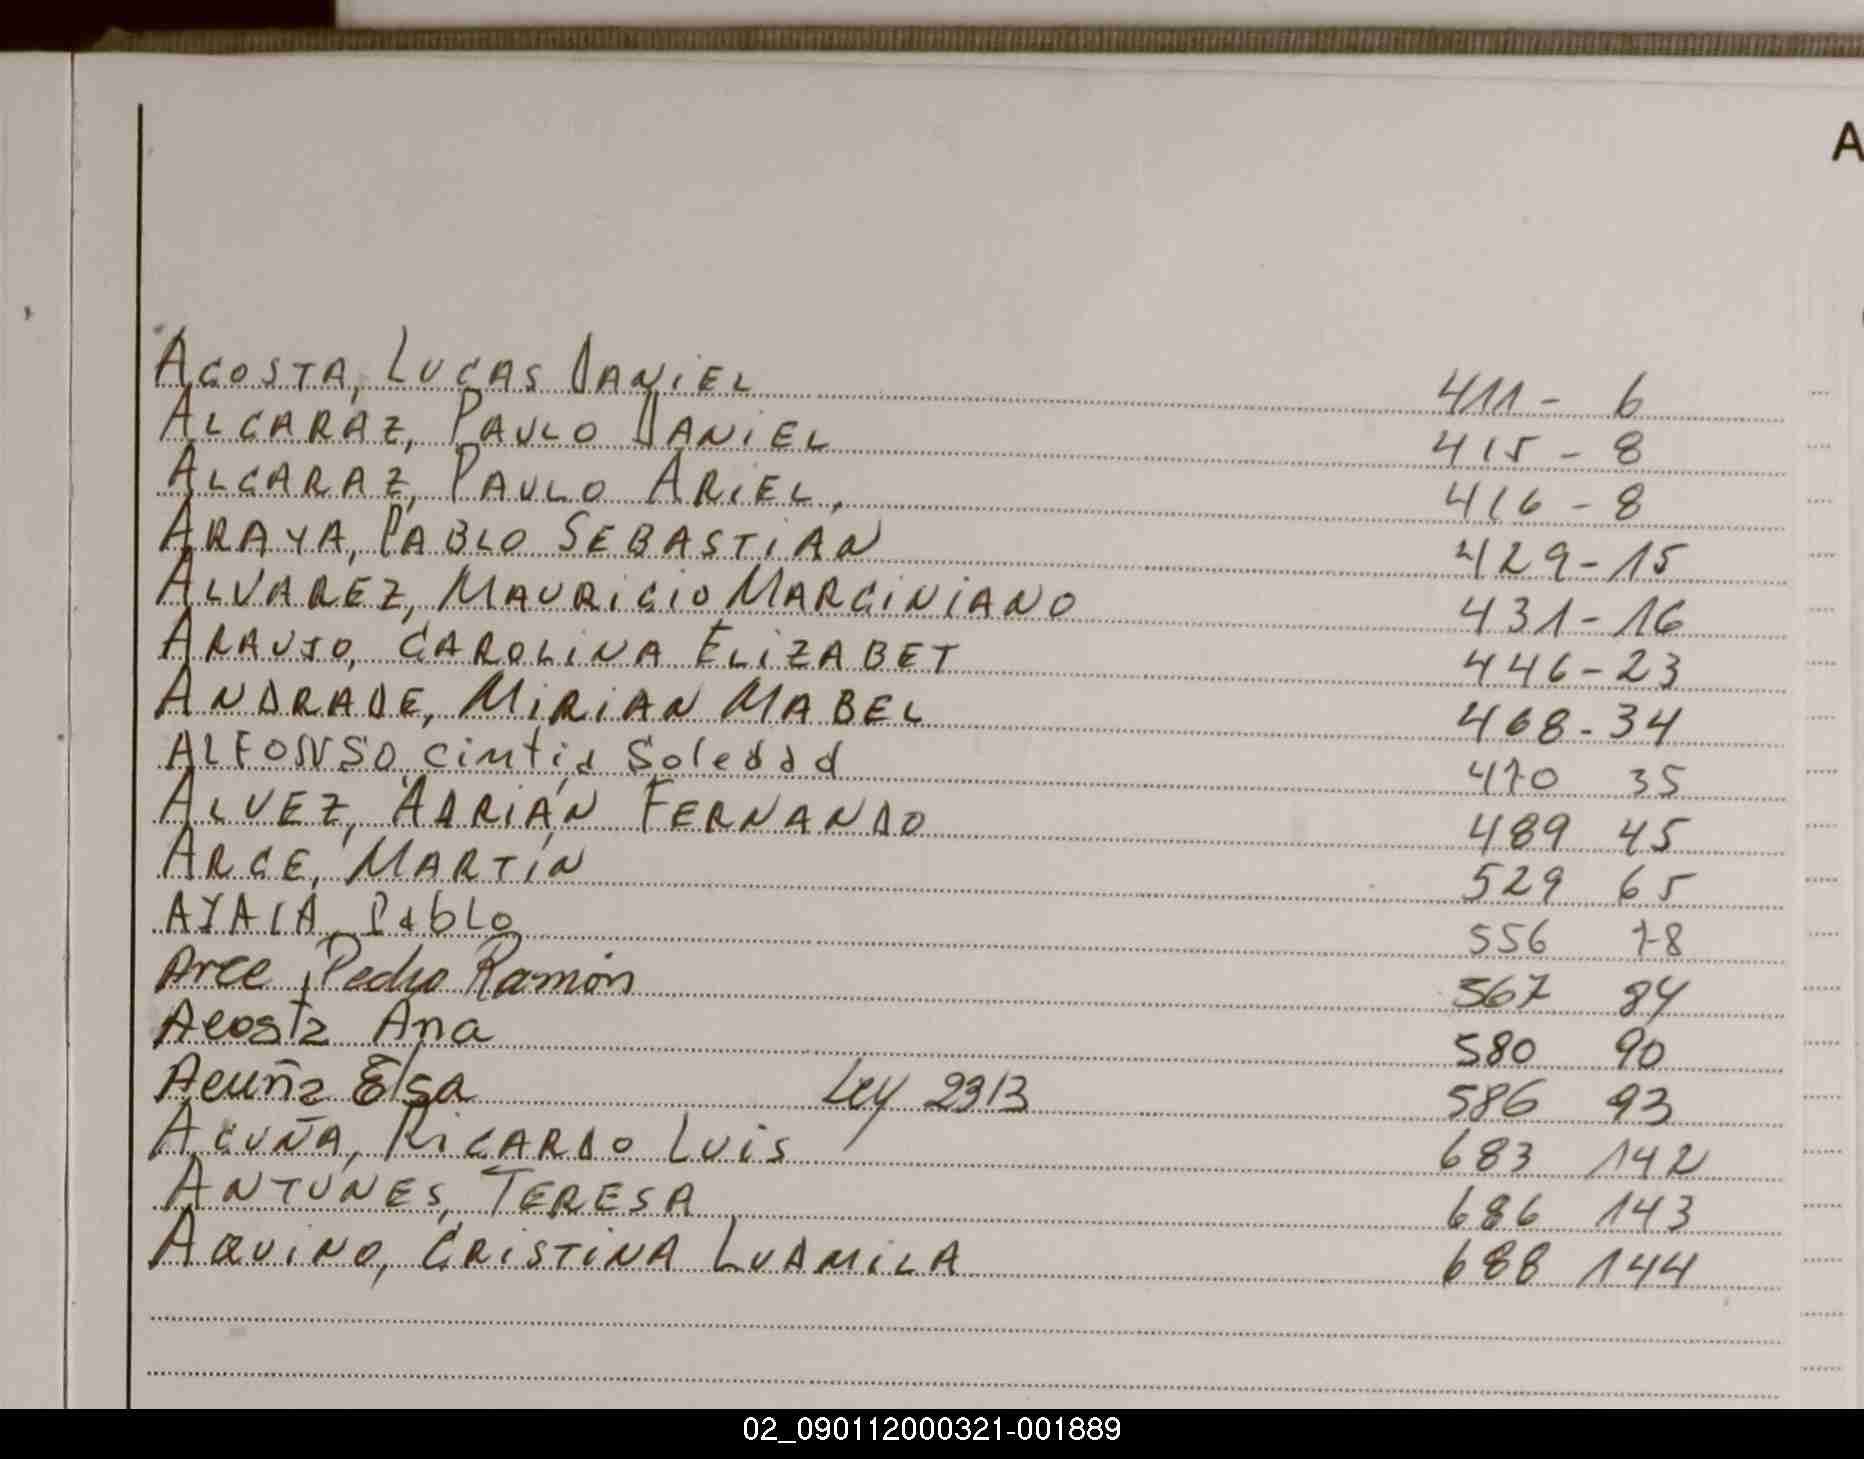 A
ACOSTA, LUCAS DANIEL 411 - 6
ALCARAZ, PAULO DANIEL 415 - 8
ALCARAZ, PAULO ARIEL, 416 - 8
ARAYA, PABLO SEBASTIAN 429 - 15
ALVAREZ, MAURICIO MARCINIANO 431 - 16
ARAUJO, CAROLINA ELIZABET 446 - 23
ANDRADE, MIRIAN MABEL 468 - 34
ALFONSO, Cintia Soledad 470 35
ALVEZ, ADRIÁN FERNANDO 489 45
ARCE, MARTÍN 529 65
AYALA, Pablo 556 78
Arce, Pedro Ramón 567 84
Acosta Ana 580 90
Acuña Elsa Ley 2313 586 93
ACUÑA, RICARDO LUIS 683 142
ANTUNES, TERESA 686 143
AQUINO, CRISTINA LUDMILA 688 144
02_090112000321-001889